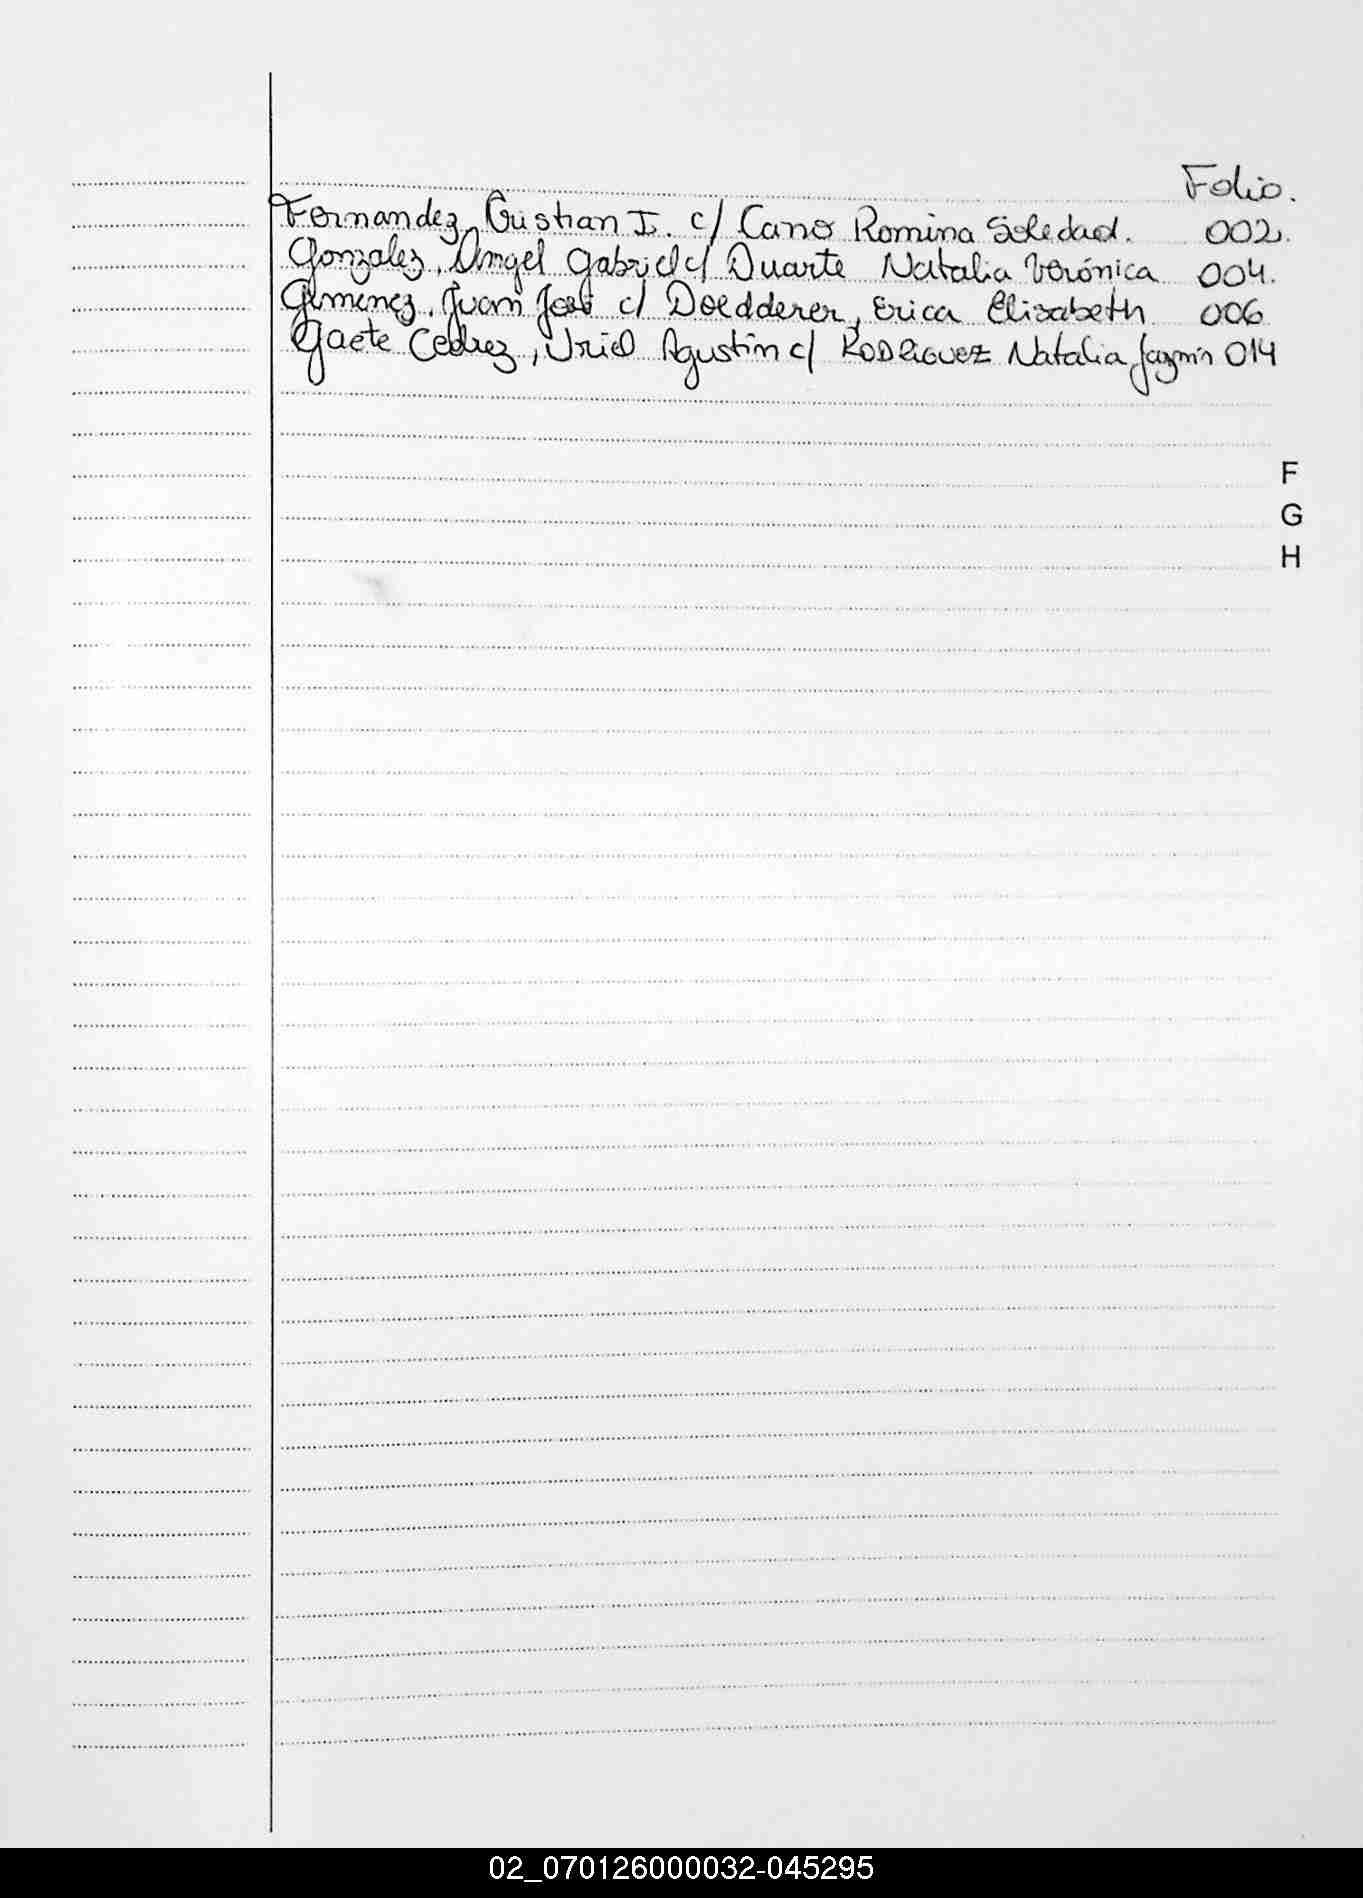 Folio.
Fernandez, Cristian I. c/ Cano Romina Soledad. 002.
Gonzalez, Angel Gabriel c/ Duarte Natalia Verónica 004.
Gimenez, Juan José c/ Doedderer, Erica Elizabeth 006
Gaete Cedrez, Uriel Agustin c/ RODRIGUEZ Natalia Jazmín 014
F
G
H
02_070126000032-045295